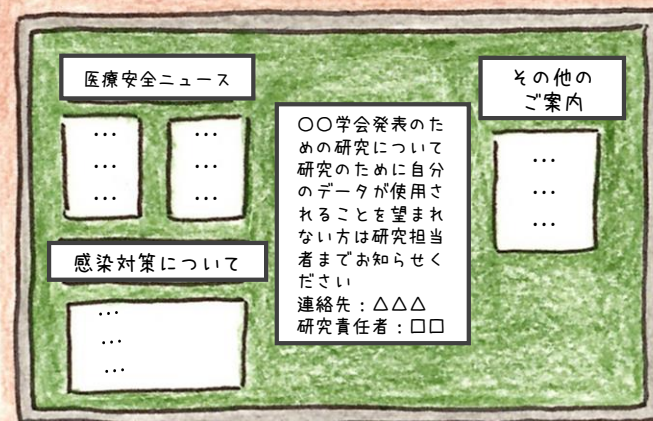 医療安全ニュース
…
…
…
…
…
…
感染対策について
…
…
…
〇〇学会発表のた
めの研究について
研究のために自分
のデータが使用さ
れることを望まれ
ない方は研究担当
者までお知らせく
ださい
連絡先：△△△
研究責任者：□□
その他の
ご案内
…
…
…